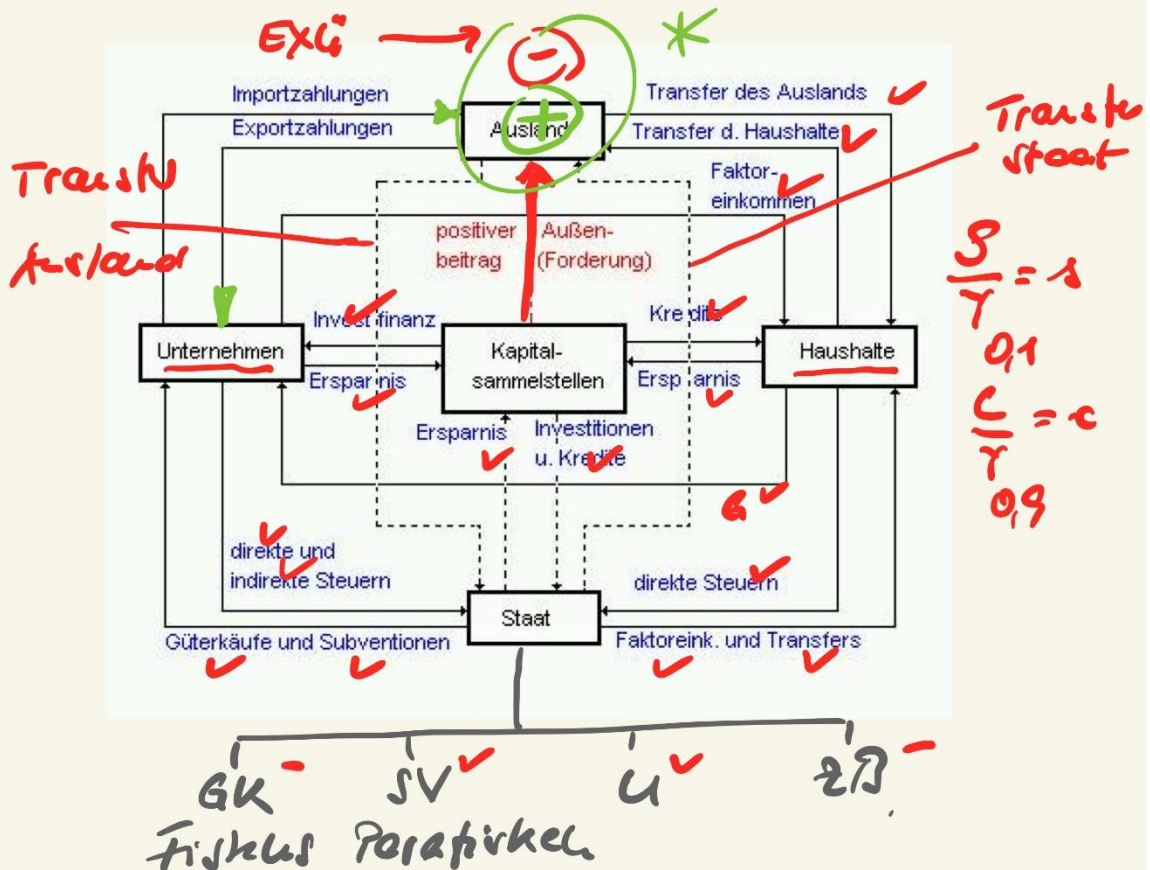 EXGü
Importzahlungen
Exportzahlungen
Ausland
-
+
*
Transfer des Auslands
Transfer d. Haushalte
Faktor-
einkommen
Transfer
Staat
Transfer
Ausland
positiver Außen-
beitrag (Forderung)
Invest finanz
Kredite
Unternehmen
Kapital-
sammelstellen
Haushalte
Ersparnis
Ersparnis
Ersparnis
Investitionen
u. Kredite
G
S/Y = s
0,1
C/Y = c
0,9
direkte und
indirekte Steuern
direkte Steuern
Staat
Güterkäufe und Subventionen
Faktoreink. und Transfers
GK - SV U ZB -
Fiskus Parafisken